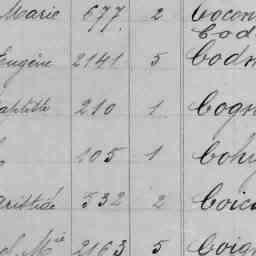 Marie 677 2 Cocon
Cod
Eugène 2141 5 Codr
aptiste 210 1 Cogn
105 1 Cohy
Aristide 532 2 Coic
Mie 2163 5 Coign